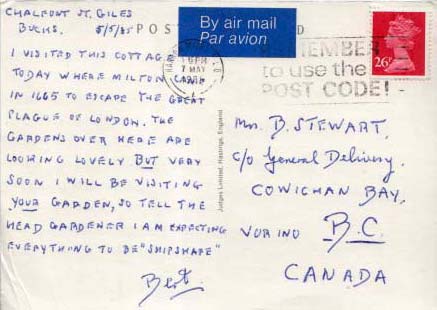 CHALFONT ST. GILES
BUCKS. 5/5/85
POST
D
By air mail
Par avion
I VISITED THIS COTTAGE
TODAY WHERE MILTON CAME
IN 1665 TO ESCAPE THE GREAT
PLAGUE OF LONDON. THE
GARDENS OVER HERE ARE
LOOKING LOVELY BUT VERY
SOON I WILL BE VISITING
YOUR GARDEN, SO TELL THE
HEAD GARDENER I AM EXPECTING
EVERYTHING TO BE "SHIPSHAPE"
Bert.
Judges Limited, Hastings, England
PM
7 MAY
EMEMBER
to use the
POST CODE!
26P
Mrs B. STEWART,
c/o General Delivery,
COWICHAN BAY,
B.C.
VOR INO
CANADA